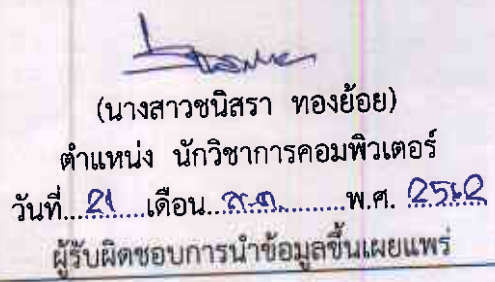 (นางสาวชนิสรา ทองย้อย)
ตำแหน่ง นักวิชาการคอมพิวเตอร์
วันที่...21......เดือน...ส.ค..........พ.ศ. 2562
ผู้รับผิดชอบการนำข้อมูลขึ้นเผยแพร่